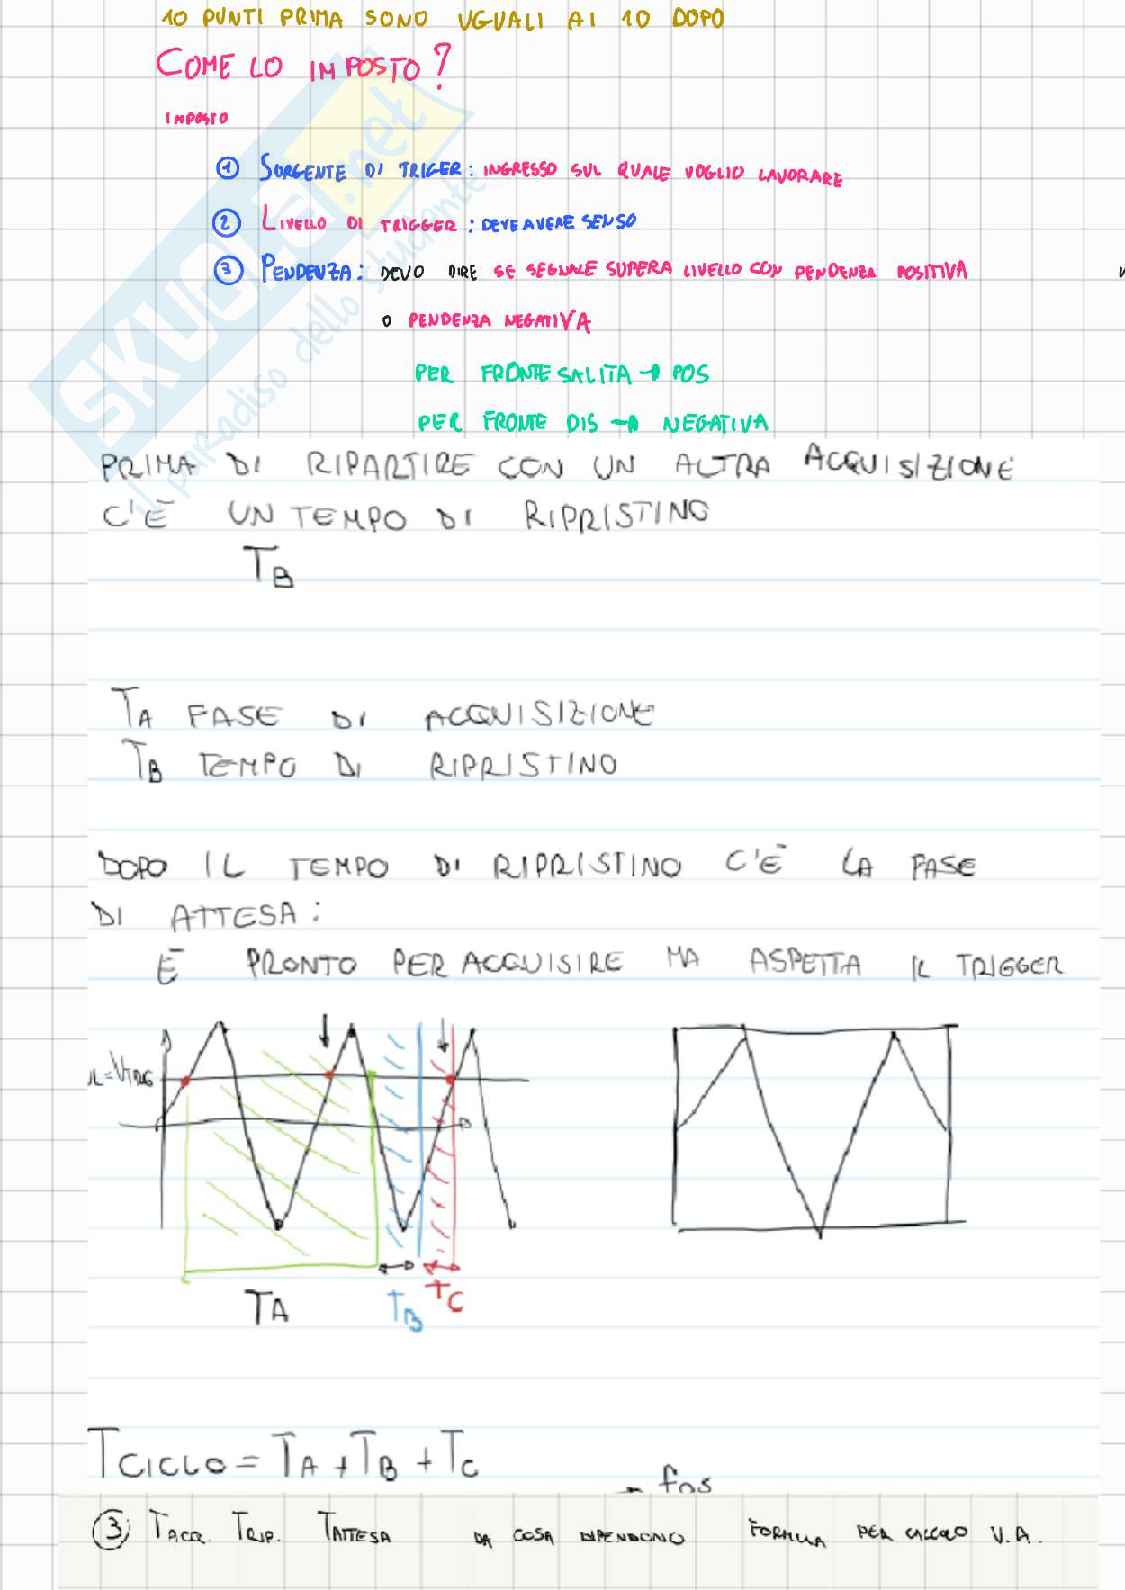 10 PUNTI PRIMA SONO UGUALI AI 10 DOPO
COME LO IMPOSTO?
IMPOSTO
① SORGENTE DI TRIGER: INGRESSO SUL QUALE VOGLIO LAVORARE
② LIVELLO DI TRIGGER: DEVE AVERE SENSO
③ PENDENZA: DEVO DIRE SE SEGNALE SUPERA LIVELLO CON PENDENZA POSITIVA
O PENDENZA NEGATIVA
PER FRONTE SALITA → POS
PER FRONTE DIS → NEGATIVA
SKUOLA.net
il paradiso dello studente
PRIMA DI RIPARTIRE CON UN ALTRA ACQUISIZIONE
C'È UN TEMPO DI RIPRISTINO
TB
TA FASE DI ACQUISIZIONE
TB TEMPO DI RIPRISTINO
DOPO IL TEMPO DI RIPRISTINO C'È LA FASE
DI ATTESA:
È PRONTO PER ACQUISIRE MA ASPETTA IL TRIGGER
L=VTRIG
TA TB TC
TCICLO = TA + TB + TC
③ TACQ. TRIP. TATTESA DA COSA DIPENDONO FORMULA PER CALCOLO V.A.